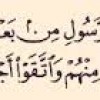 رَّسُولِ مِنۢ بَعْ
مِنْهُمْ وَٱتَّقَوْا۟ أَجْ